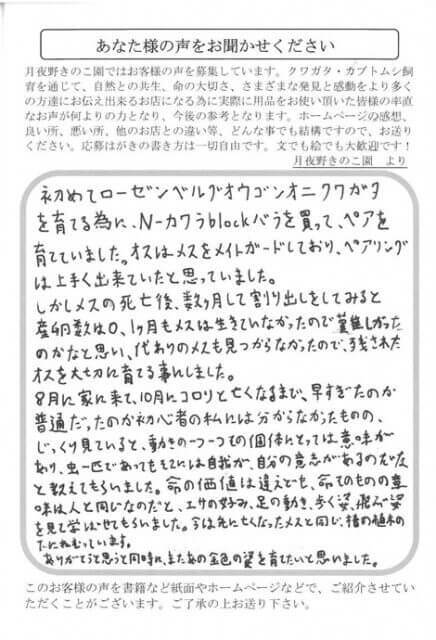 あなた様の声をお聞かせください
月夜野きのこ園ではお客様の声を募集しています。クワガタ・カブトムシ飼
育を通じて、自然との共生、命の大切さ、さまざまな発見と感動をより多く
の方達にお伝え出来るお店になる為に実際に用品をお使い頂いた皆様の率直
なお声が何よりの力となり、今後の参考となります。ホームページの感想、
良い所、悪い所、他のお店との違い等、どんな事でも結構ですので、お送り
ください。応募はがきの書き方は一切自由です。文でも絵でも大歓迎です!
月夜野きのこ園 より
初めてローゼンベルグオウゴンオニクワガタ
を育てる為に、N-カワラblockバラを買って、ペアを
育てていました。オスはメスをメイトガードしており、ペアリング
は上手く出来ていたと思っていました。
しかしメスの死亡後、数ヶ月して割り出しをしてみると
産卵数は0、1ヶ月もメスは生きていなかったので難しかった
のかなと思い、代わりのメスも見つからなかったので、残された
オスを大切に育てる事にしました。
8月に家に来て、10月にコロリと亡くなるまで、早すぎたのか
普通だったのか初心者の私には分からなかったものの、
じっくり見ていると、動きの一つ一つその個体にとっては意味が
あり、虫一匹であってもそこには自我が、自分の意志があるのだな
と教えてもらいました。命の価値は違えども、命そのものの意
味は人と同じなのだと、エサの好み、足の動き、歩く姿、飛ぶ姿
を見て学ばせてもらいました。今は先に亡くなったメスと同じ、椿の植木の
下にねむっています。
ありがとうと思うと同時に、またあの金色の姿を育てたいと思いました。
このお客様の声を書籍など紙面やホームページなどで、ご紹介させてい
ただくことがございます。ご了承の上お送り下さい。